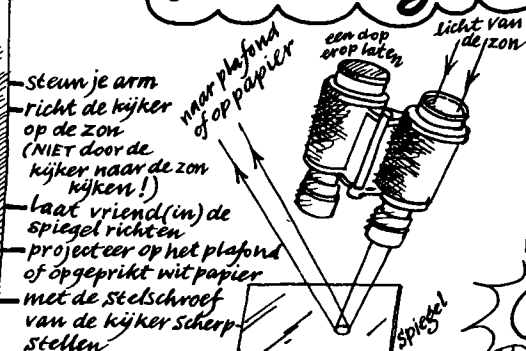 steun je arm
richt de kijker
op de zon
(NIET door de
kijker naar de zon
kijken!)
laat vriend(in) de
spiegel richten
projecteer op het plafond
of opgeprikt wit papier
met de stelschroef
van de kijker scherp-
stellen
naar plafond
of op papier
een dop
erop laten
licht van
de zon
spiegel